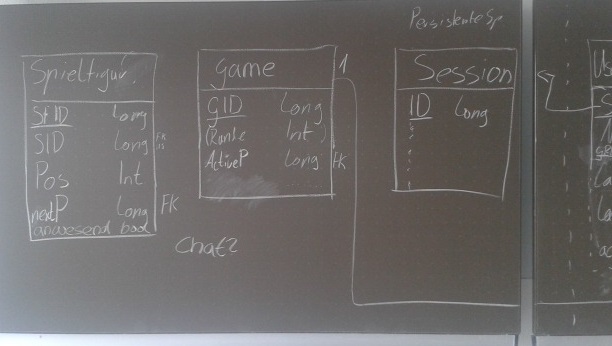 Spielfigur.
SfID Long
SID Long FK
Pos Int
nextP Long FK
anwesend bool
Game 1
GID Long
(Runde Int)
ActiveP Long FK
Chat?
Session
ID Long
Us